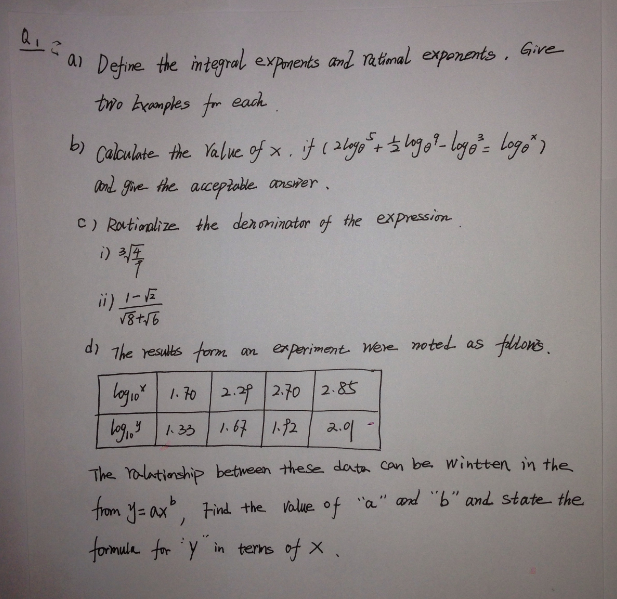 Q1:
a) Define the integral exponents and rational exponents. Give
two Examples for each.
b) Calculate the Value of x. if (2logₑ⁵ + ½ logₑ⁹ - logₑ³ = logₑˣ)
and give the acceptable answer.
c) Rationalize the denominator of the expression.
i) ∛(4/7)
ii) (1-√2)/(√8+√6)
d) The results form an experiment were noted as follows.
log₁₀ˣ 1.70 2.29 2.70 2.85
log₁₀ʸ 1.33 1.67 1.92 2.01
The ralationship between these data can be wintten in the
from y=axᵇ, Find the value of "a" and "b" and state the
formula for "y" in terms of x.